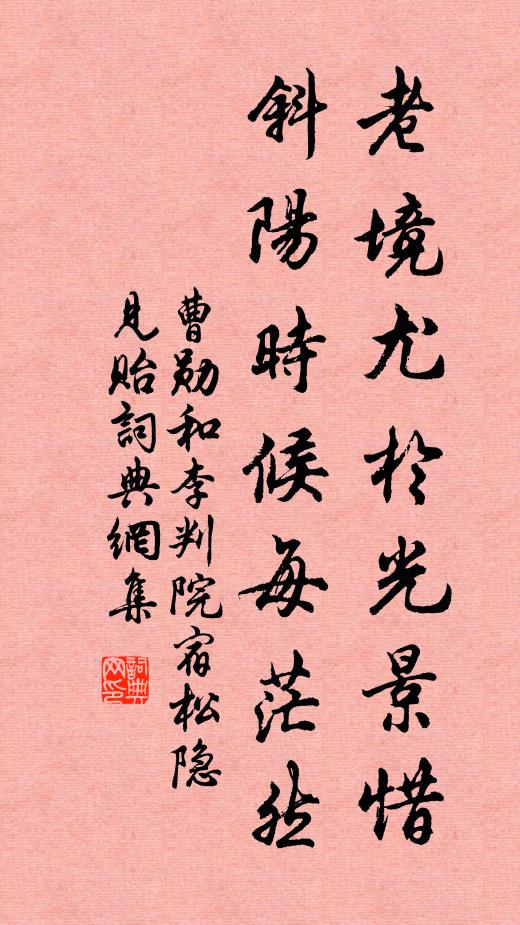 老境尤於光景惜
斜陽時候每茫然
曹勛和李判院宿松隐
見貽詞典網集
詞典网印